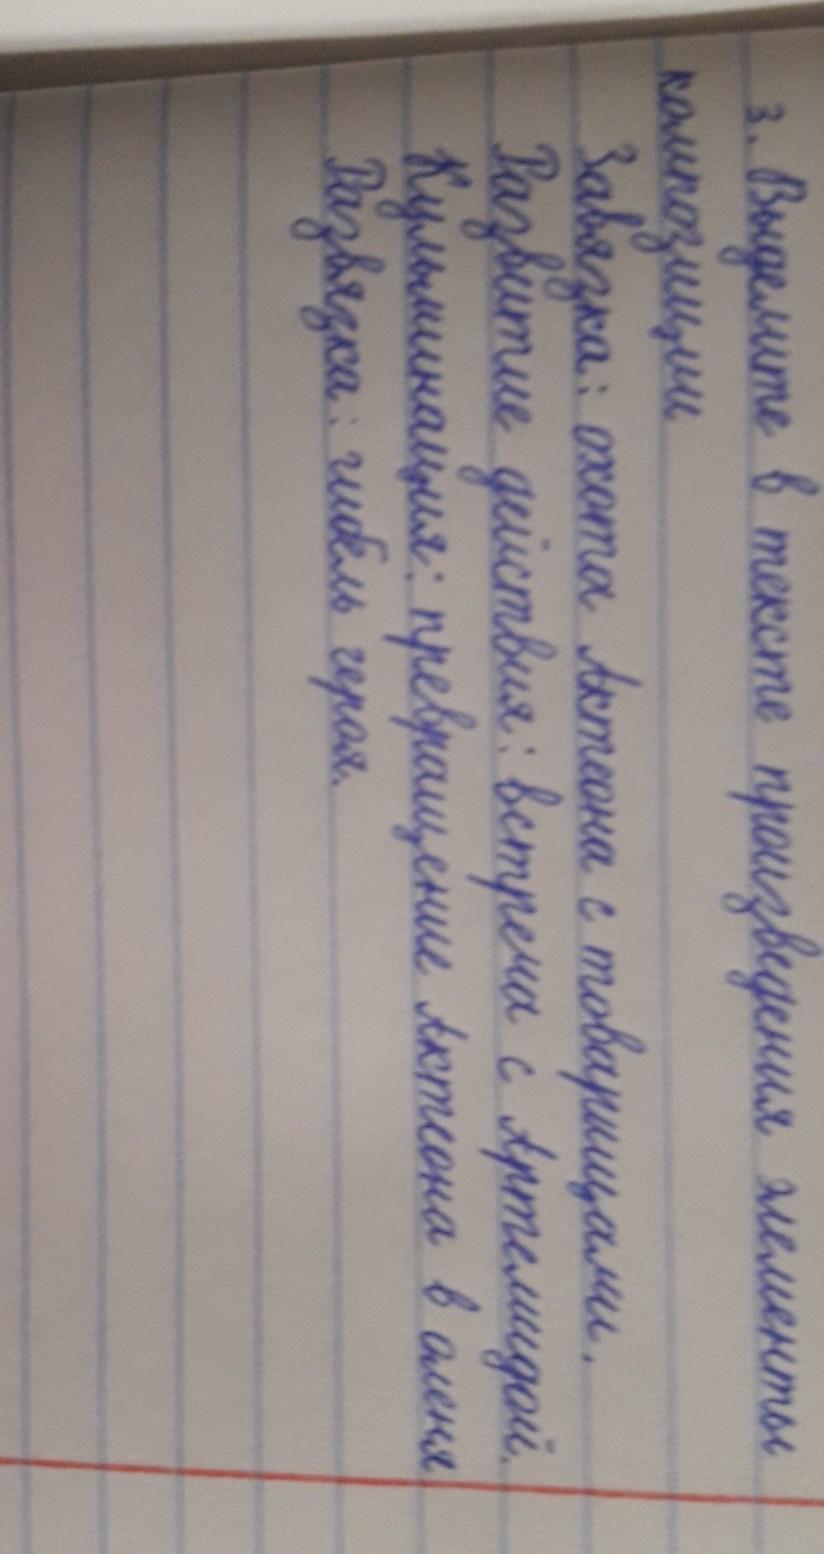 3. Выделите в тексте произведения элементы
композиции
Завязка: охота Актеона с товарищами.
Развитие действия: встреча с Артемидой.
Кульминация: превращение Актеона в оленя
Развязка: гибель героя.